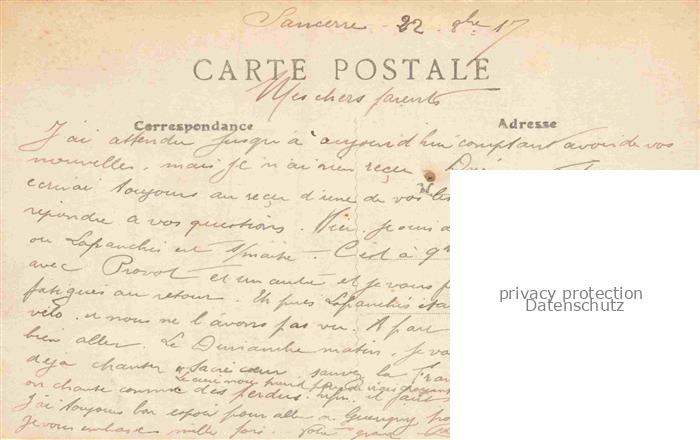 Sancerre - 22 8bre 17
CARTE POSTALE
Mes chers parents
Correspondance
Adresse
J'ai attendu jusqu'à aujourd'hui comptant avoir de vos
nouvelles, mais je n'ai rien reçu
ecrirai toujours au reçu d'une de vos
repondre a vos questions. Hier je suis
ou Lafranchis est C'est à
avec Provot et un autre et je vous
fatigués au retour. Et puis Lafranchis
vélo, et nous ne l'avons pas vu. A part
bien aller. Le Dimanche matin, je
deja chanter "Sacré coeur, sauvez la
on chante comme des perdus.
J'ai toujours bon espoir pour aller a Guerigny
Je vous embrasse mille fois. Votre grand
privacy protection
Datenschutz